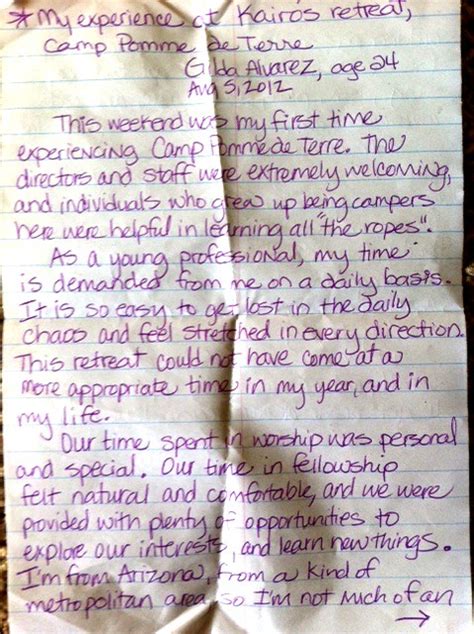 * My experience at Kairos retreat,
Camp Pomme de Terre
Gilda Alvarez, age 24
Aug 5, 2012
This weekend was my first time
experiencing Camp Pomme de Terre. The
directors and staff were extremely welcoming,
and individuals who grew up being campers
here were helpful in learning all "the ropes".
As a young professional, my time
is demanded from me on a daily basis.
It is so easy to get lost in the daily
chaos and feel stretched in every direction.
This retreat could not have come at a
more appropriate time in my year, and in
my life.
Our time spent in worship was personal
and special. Our time in fellowship
felt natural and comfortable, and we were
provided with plenty of opportunities to
explore our interests, and learn new things.
I'm from Arizona, from a kind of
metropolitan area, so I'm not much of an
→